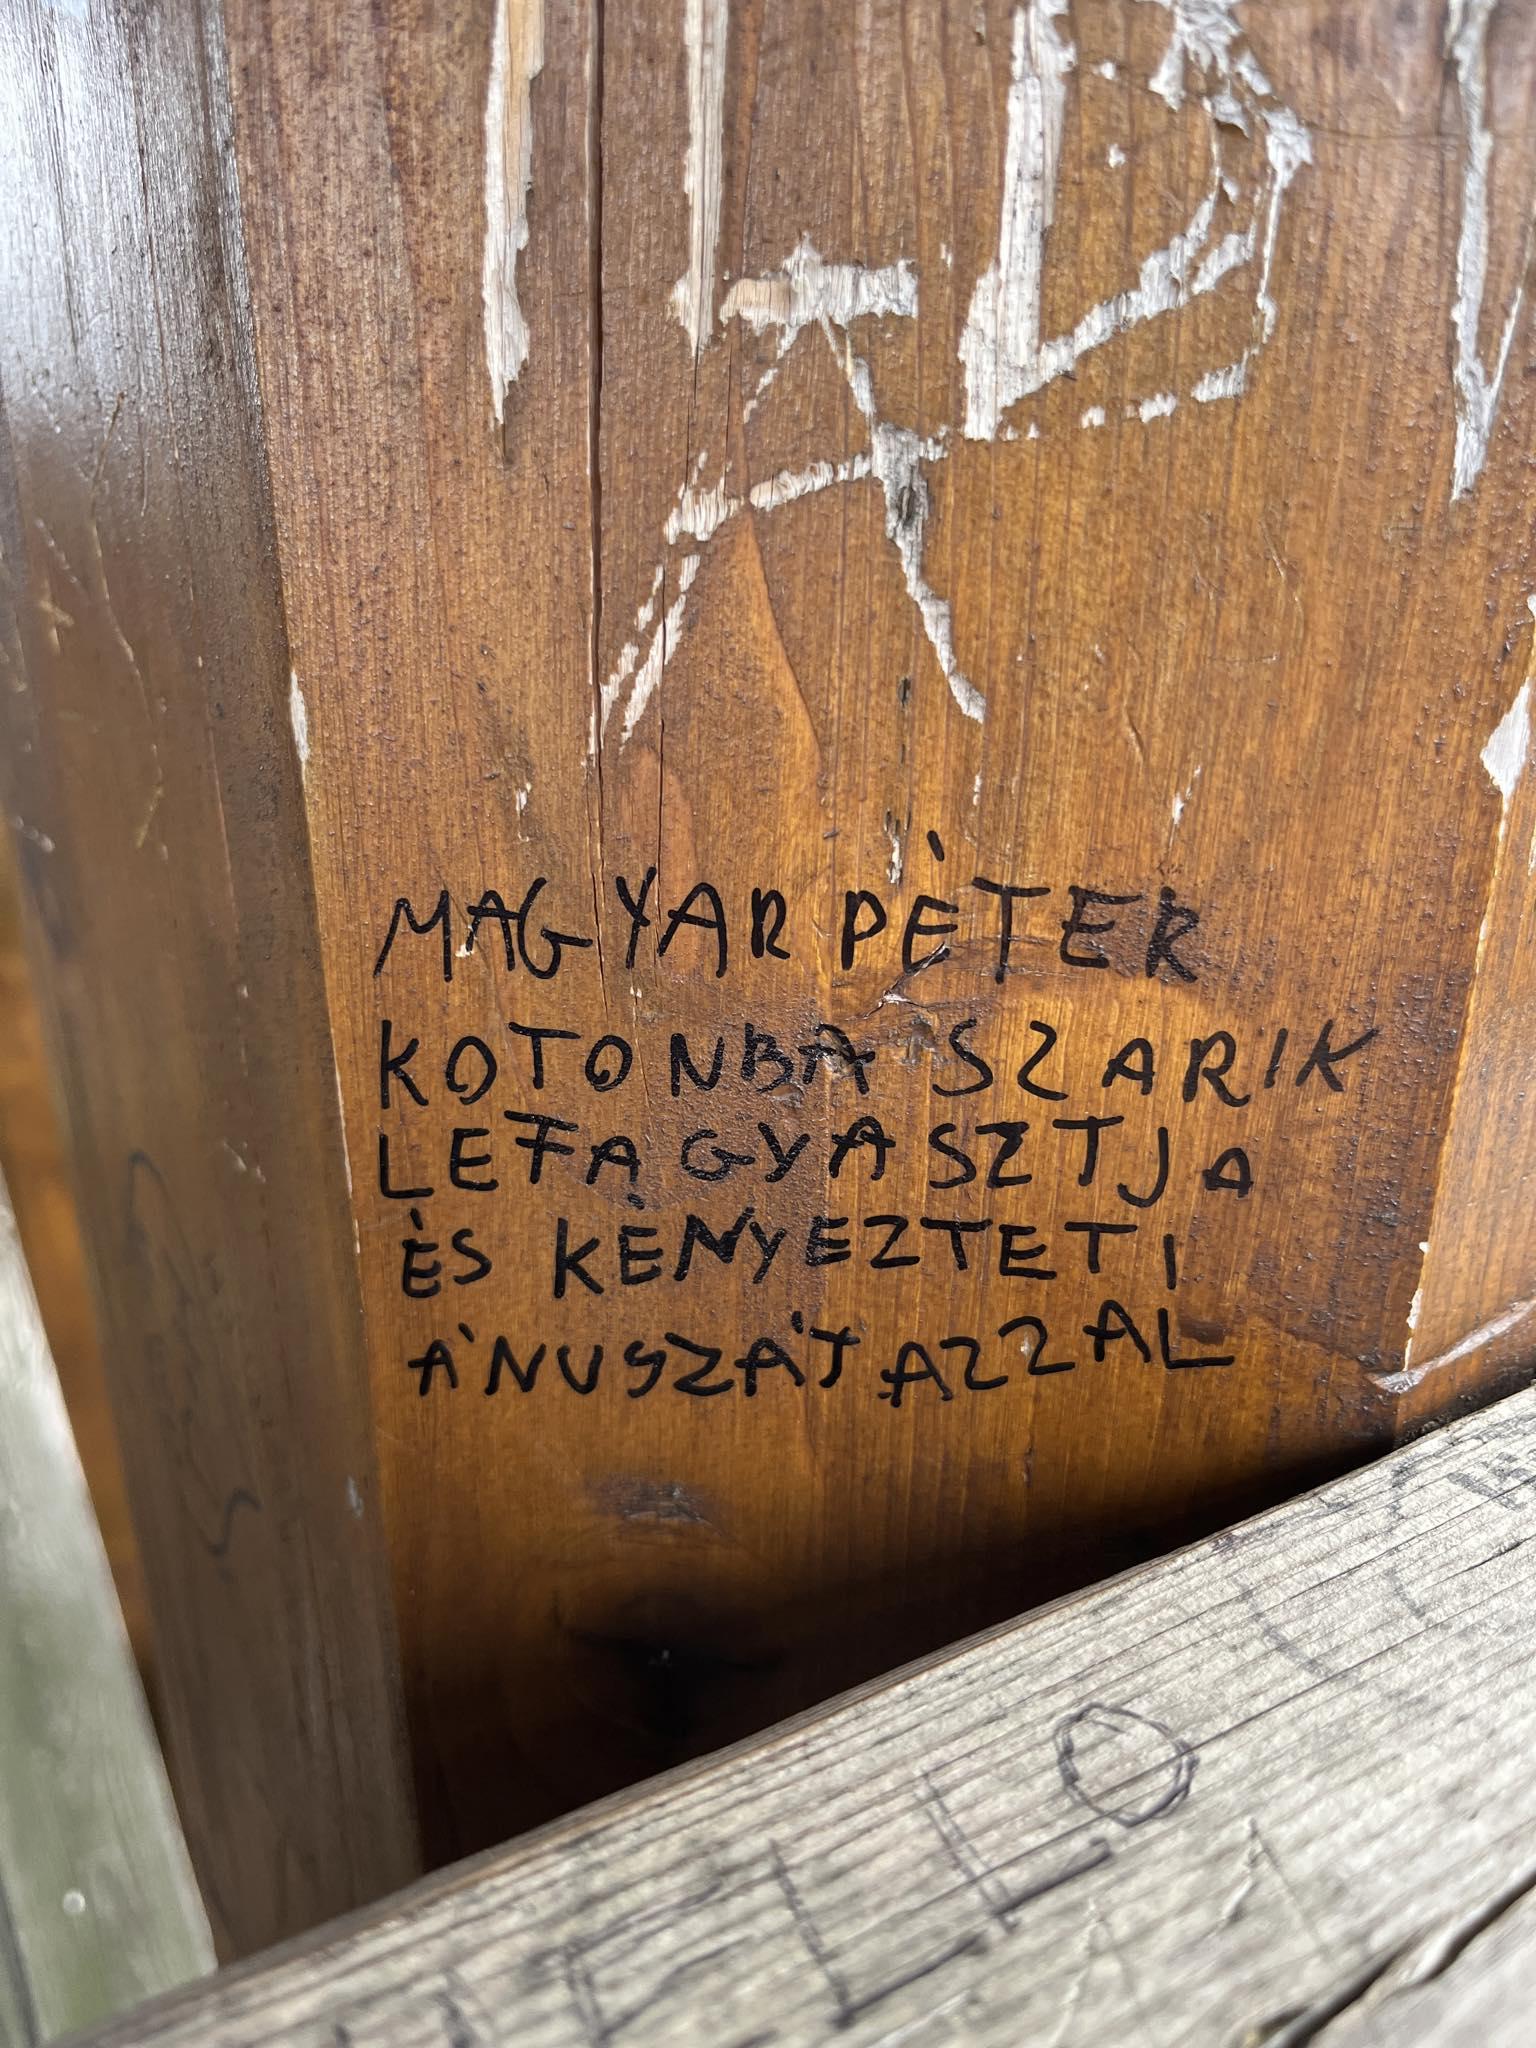 MAGYAR PÉTER
KOTONBA SZARIK
LEFAGYASZTJA
ÉS KÉNYEZTETI
ÁNUSZÁT AZZAL